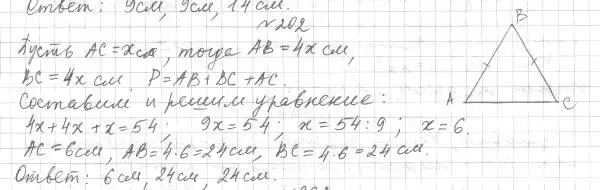 Ответ: 9см, 9см, 14см.
№202
Пусть AC = x см, тогда AB = 4x см,
BC = 4x см P = AB + BC + AC.
Составим и решим уравнение:
4x + 4x + x = 54; 9x = 54; x = 54 : 9; x = 6.
AC = 6см, AB = 4·6 = 24см, BC = 4·6 = 24см.
Ответ: 6см, 24см, 24см.
B
A
C